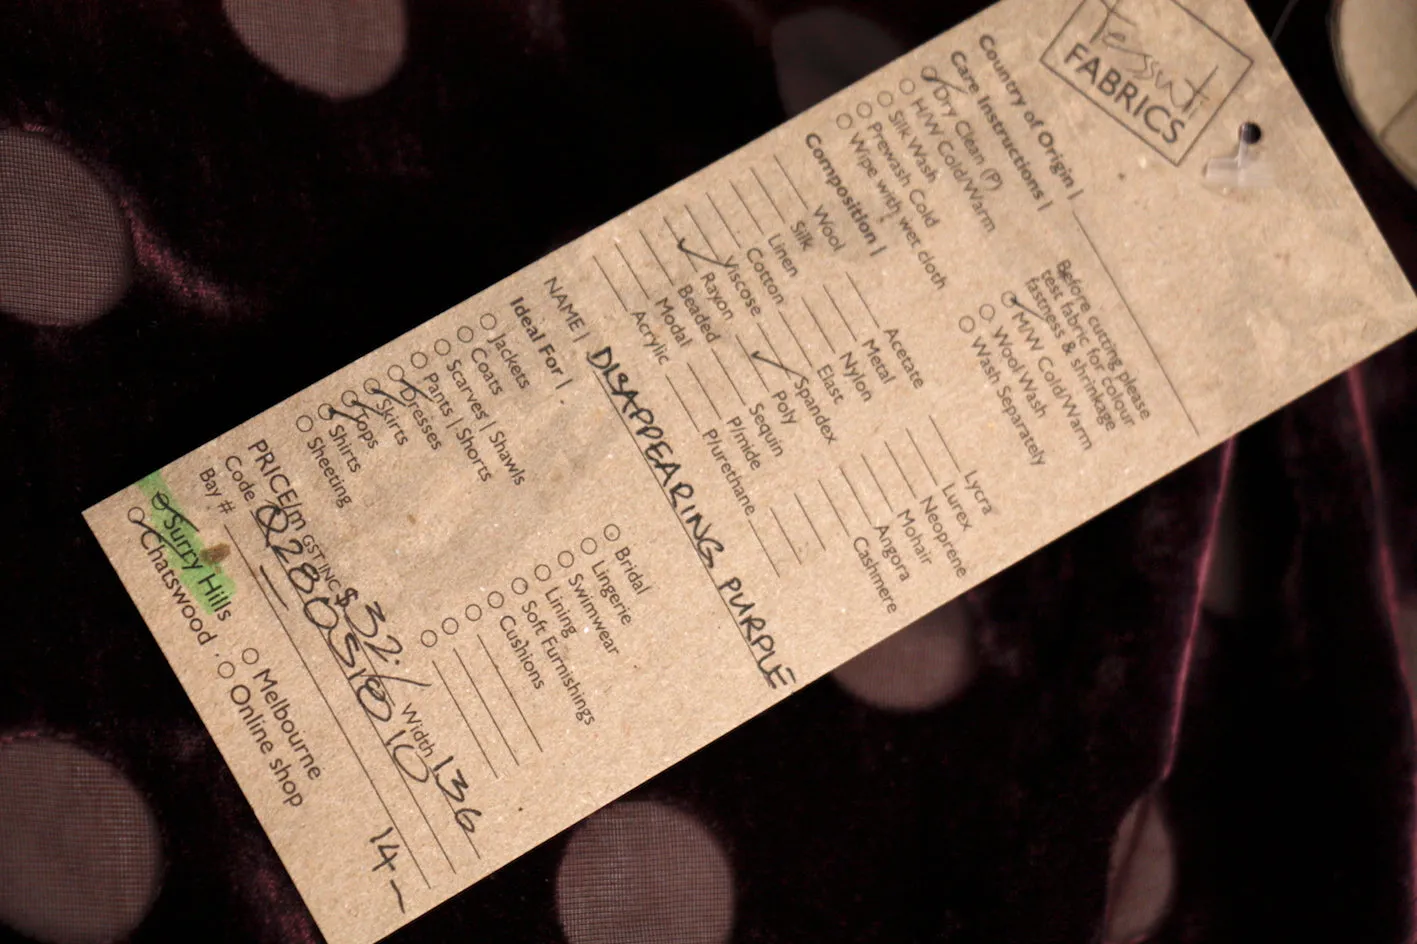 Tessuti
FABRICS
Country of Origin |
Care Instructions |
Dry Clean (P)
H/W Cold/Warm
Silk Wash
Prewash Cold
Wipe with wet cloth
Before cutting please
test fabric for colour
fastness & shrinkage
M/W Cold/Warm
Wool Wash
Wash Separately
Composition |
Wool
Silk
Linen
Cotton
Viscose
Rayon
Beaded
Modal
Acrylic
Acetate
Metal
Nylon
Elast
Spandex
Poly
Sequin
P/mide
P/urethane
Lycra
Lurex
Neoprene
Mohair
Angora
Cashmere
NAME | DISAPPEARING PURPLE
Ideal For |
Jackets
Coats
Scarves | Shawls
Pants | Shorts
Dresses
Skirts
Tops
Shirts
Sheeting
Bridal
Lingerie
Swimwear
Lining
Soft Furnishings
Cushions
PRICE/m GST INC $ 32.- Width 136
Code
Bay #
14-
Surry Hills
Chatswood
Melbourne
Online shop